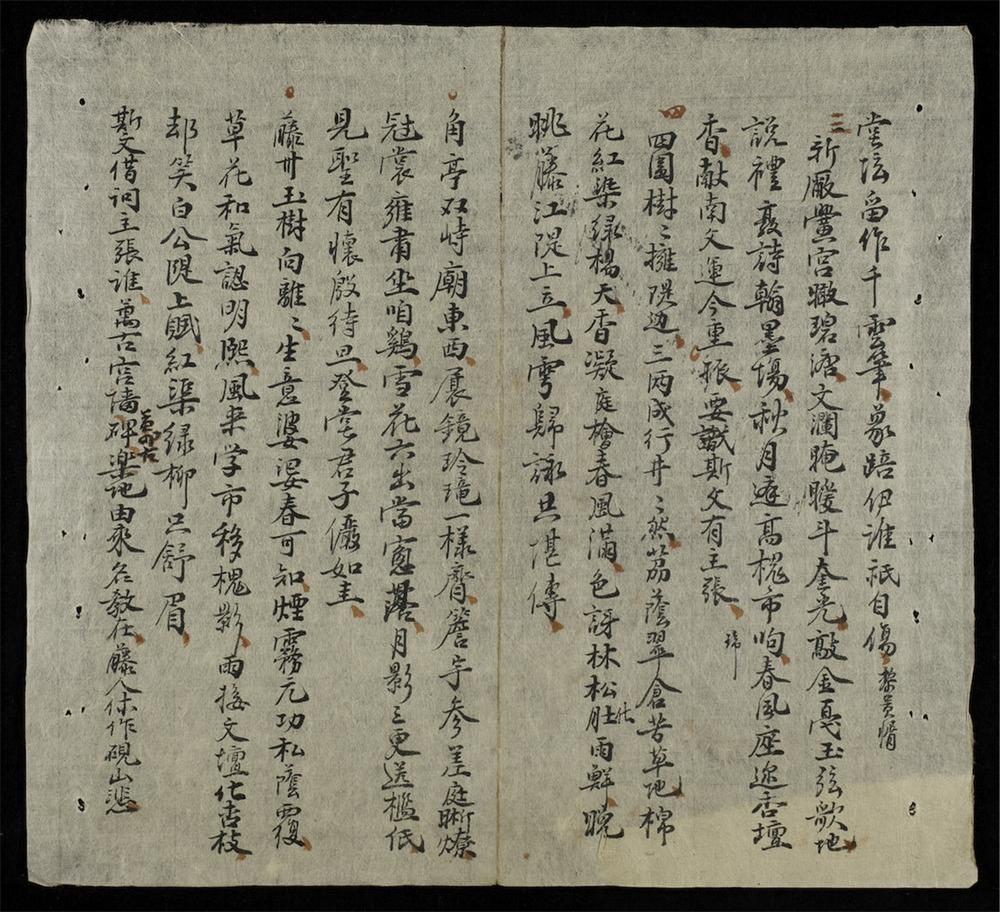 堂坛留作千雲筆蒙踣伊誰祇自傷黎貴惰
三
新厰黌宮瞰碧溏文瀾晼暖斗奎光敲金戞玉弦歌地
説禮敦詩翰墨場秋月遶高槐市响春風座迩杏壇
香献南文運今重振要識斯文有主張
瑞
四
四園樹〻擁隄边三两成行井〻然荔蔭翠倉苔草地棉
花紅染绿楊天香凝庭檜春風滿色訝林松肚雨鮮曉
眺藤江隄上立風雩歸詠共堪傳
角亭双峙廟東西展鏡玲瓏一樣齊簷宇参差庭晣燎
冠裳雍肅坐咱鷄雪花六出當窓落月影三更送檻低
見聖有懷殷待旦登堂君子儼如圭
藤卅玉樹向離〻生意婆娑春可知煙霧元功私蔭覆
草花和氣認明熙風来学市移槐影雨接文壇化杏枝
却笑白公隄上賦紅渠绿柳只舒眉
斯文借问主張谁萬古宫墻碑楽地由来名教在藤人休作硯山悲